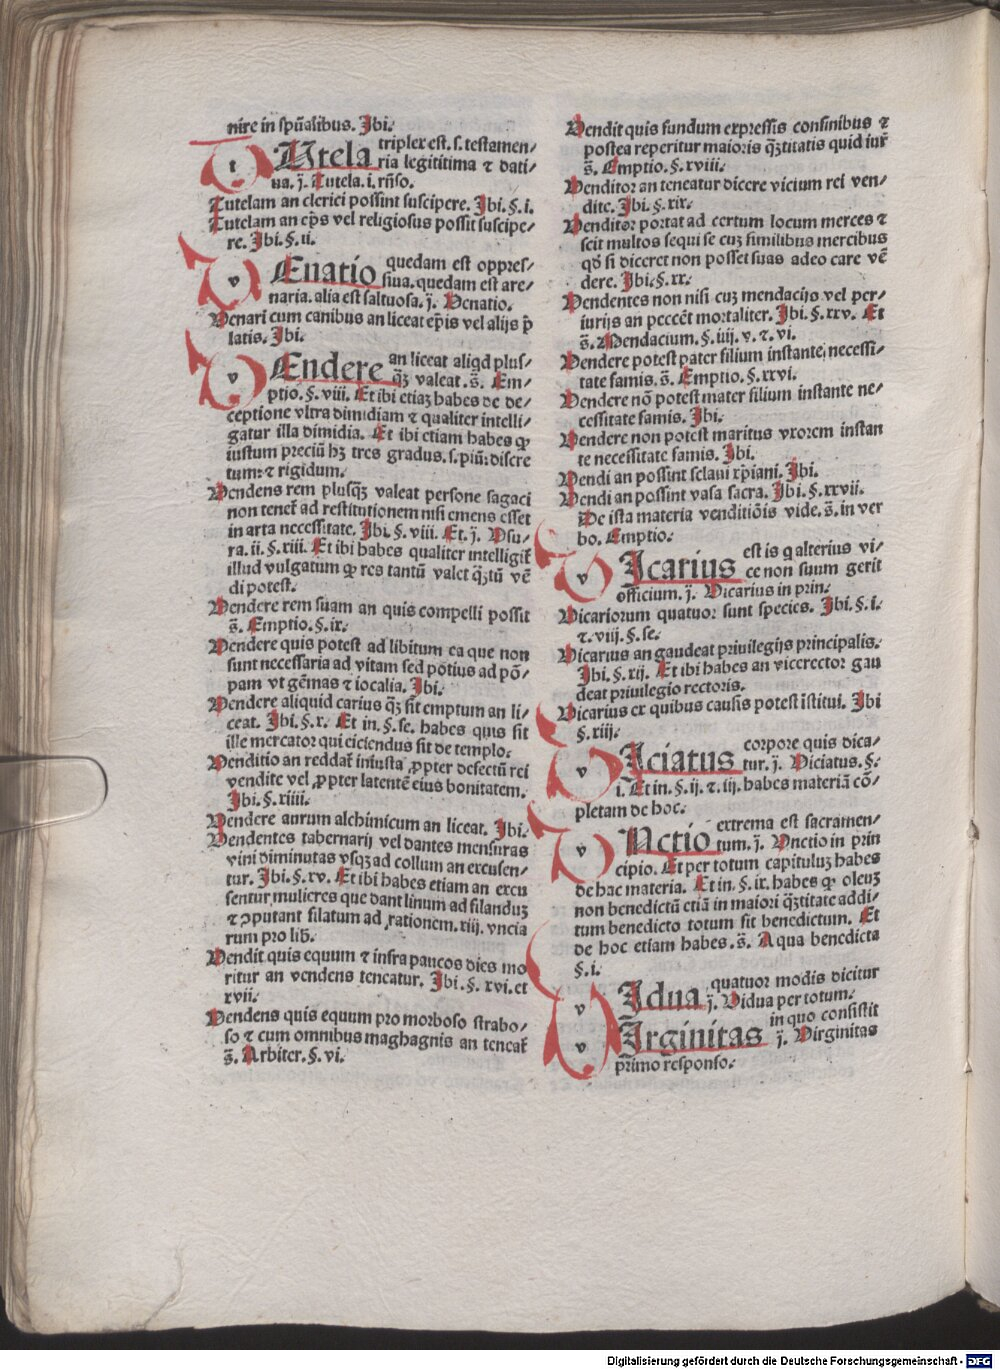 nire in spũalibus. Ibi.
t Utela triplex est. s. testamen/
ria legititima ⁊ dati/
ua. j. Tutela. i. rñso.
Tutelam an clerici possint suscipere. Ibi. §. i.
Tutelam an ep̃s vel religiosus possit suscipe/
re. Ibi. §. ii.
v Enatio quedam est oppres/
siua. quedam est are/
naria. alia est saltuosa. j. Venatio.
Venari cum canibus an liceat ep̃is vel alijs p̃
latis. Ibi.
v Endere an liceat aliqd plus/
qȝ valeat. s̃. Em/
ptio. §. viii. Et ibi etiaȝ habes de de/
ceptione vltra dimidiam ⁊ qualiter intelli/
gatur illa dimidia. Et ibi etiam habes ꝙ
iustum preciũ hȝ tres gradus. s. piũ: discre
tum: ⁊ rigidum.
Vendens rem plusqȝ valeat persone sagaci
non tenet̃ ad restitutionem nisi emens esset
in arta necessitate. Ibi. §. viii. Et. j. Usu/
ra. ii. §. xiii. Et ibi habes qualiter intelligit̃
illud vulgatum ꝙ res tantũ valet qȝtũ vẽ
di potest.
Vendere rem suam an quis compelli possit
s̃. Emptio. §. ix.
Vendere quis potest ad libitum ea que non
sunt necessaria ad vitam sed potius ad põ/
pam vt gẽmas ⁊ iocalia. Ibi.
Vendere aliquid carius qȝ sit emptum an li/
ceat. Ibi. §. x. Et in. §. se. habes quis sit
ille mercator qui eiciendus sit de templo.
Venditio an reddat̃ iniusta ꝓpter defectũ rei
vendite vel ꝓpter latentẽ eius bonitatem.
Ibi. §. xiiii.
Vendere aurum alchimicum an liceat. Ibi.
Vendentes tabernarij vel dantes mensuras
vini diminutas vsqȝ ad collum an excusen/
tur. Ibi. §. xv. Et ibi habes etiam an excu
sentur mulieres que dant linum ad filanduȝ
⁊ ꝯputant filatum ad rationem. xiij. vncia
rum pro lib̃.
Vendit quis equum ⁊ infra paucos dies mo
ritur an vendens teneatur. Ibi. §. xvi. et
xvii.
Vendens quis equum pro morboso strabo/
so ⁊ cum omnibus maghagnis an teneat̃
s̃. Arbiter. §. vi.
Vendit quis fundum expressis confinibus ⁊
postea reperitur maioris qȝtitatis quid iur̃
s̃. Emptio. §. xviii.
Venditor an teneatur dicere vicium rei ven/
dite. Ibi. §. xix.
Venditor portat ad certum locum merces ⁊
scit multos sequi se cuȝ similibus mercibus
qð si diceret non posset suas adeo care vẽ
dere. Ibi. §. xx.
Vendentes non nisi cuȝ mendacijs vel per/
iurijs an peccẽt mortaliter. Ibi. §. xxv. Et
s̃. Mendacium. §. iiij. v. ⁊. vi.
Vendere potest pater filium instante necessi/
tate famis. s̃. Emptio. §. xxvi.
Vendere nõ potest mater filium instante ne/
cessitate famis. Ibi.
Vendere non potest maritus vxorem instan
te necessitate famis. Ibi.
Vendi an possint sclaui xp̃iani. Ibi.
Vendi an possint vasa sacra. Ibi. §. xxvii.
De ista materia venditiõis vide. s̃. in ver
bo. Emptio.
v Icarius est is q alterius vi/
ce non suum gerit
officium. j. Vicarius in prin.
Vicariorum quatuor sunt species. Ibi. §. i.
⁊. viij. §. se.
Vicarius an gaudeat priuilegijs principalis.
Ibi. §. xij. Et ibi habes an vicerector gau
deat priuilegio rectoris.
Vicarius ex quibus causis potest istitui. Ibi
§. xiij.
v Iciatus corpore quis dica/
tur. j. Viciatus. §.
i. Et in. §. ij. ⁊. iij. habes materiã cõ/
pletam de hoc.
v Nctio extrema est sacramen/
tum. j. Unctio in prin
cipio. Et per totum capituluȝ habes
de hac materia. Et in. §. ix. habes ꝙ oleuȝ
non benedictũ etiã in maiori qȝtitate addi/
tum benedicto totum sit benedictum. Et
de hoc etiam habes. s̃. Aqua benedicta
§. i.
v Idua quatuor modis dicitur
j. Vidua per totum.
v Irginitas in quo consistit
j. Virginitas
primo responso.
Digitalisierung gefördert durch die Deutsche Forschungsgemeinschaft - DFG